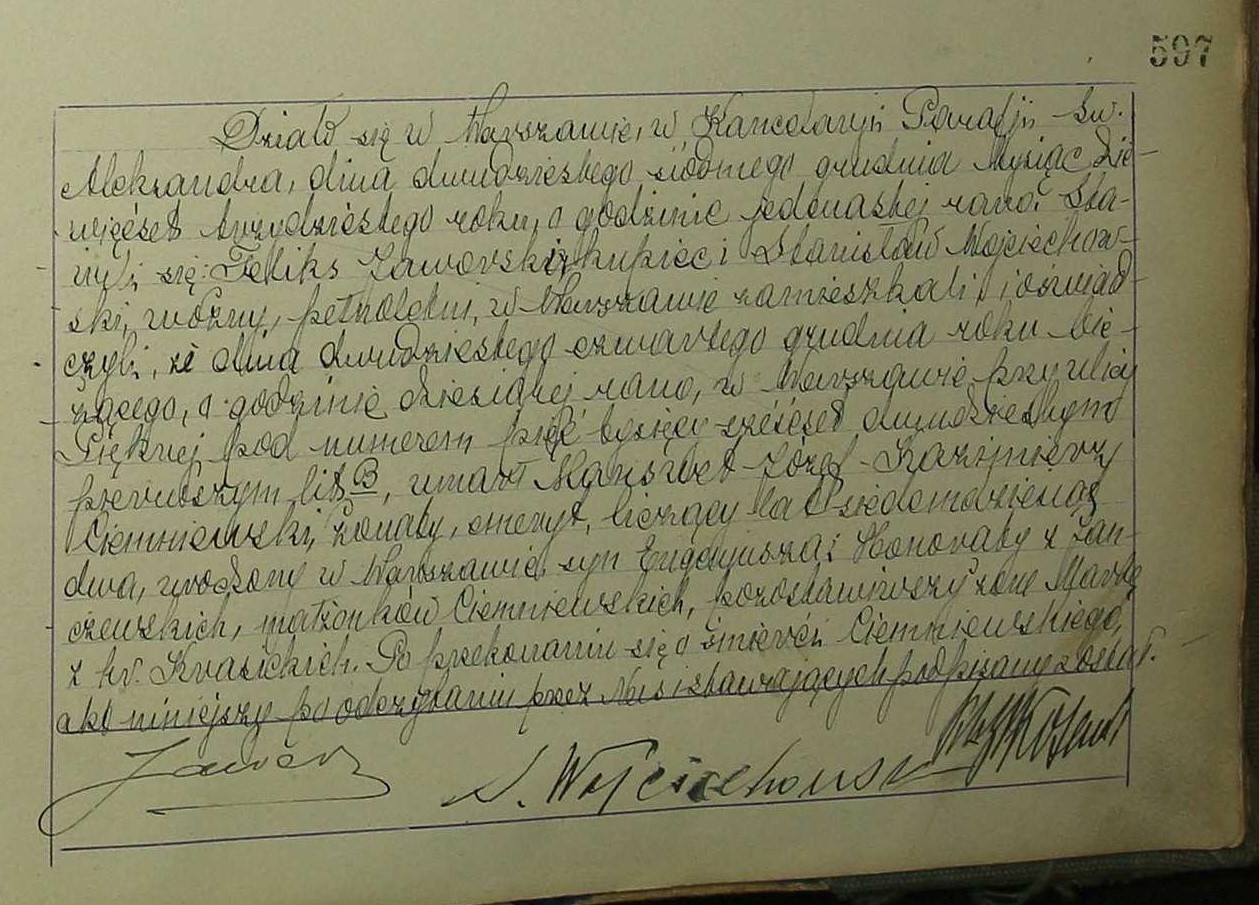 597
Działo się w Warszawie, w Kancelaryi Parafji Św.
Aleksandra, dnia dwudziestego siódmego grudnia tysiąc dzie-
więćset trzydziestego roku, o godzinie jedenastej rano. Sta-
wili się: Feliks Jaworski, kupiec i Stanisław Wojciechow-
ski, woźny, pełnoletni, w Warszawie zamieszkali, i oświad-
czyli, że dnia dwudziestego czwartego grudnia roku bie-
żącego, o godzinie dziesiątej rano, w Warszawie, przy ulicy
Pięknej pod numerem pięć tysięcy sześćset dwudziestym
pierwszym lit. B, umarł Manswet Józef-Kazimierz
Ciemniewski, żonaty, emeryt, liczący lat siedemdziesiąt
dwa, urodzony w Warszawie, syn Eugenjusza i Honoraty z Jan-
czewskich, małżonków Ciemniewskich, pozostawiwszy żonę Marję
z hr. Krasickich. Po przekonaniu się o śmierci Ciemniewskiego,
akt niniejszy po odczytaniu przez Nas i stawających podpisany został.
S. Wojciechowski